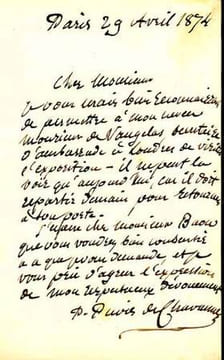 Paris 29 Avril 1874
Cher Monsieur
Je vous serais bien reconnaissant
de permettre à mon neveu
monsieur de Vaugelas secrétaire
d'ambassade à Londres de visiter
l'exposition - il ne peut la
voir qu'aujourd'hui, car il doit
repartir demain pour retourner
à son poste.
J'espère cher monsieur
que vous voudrez bien consentir
à ce que je vous demande, et je
vous prie d'agréer l'expression
de mon respectueux dévouement
P. Puvis de Chavannes